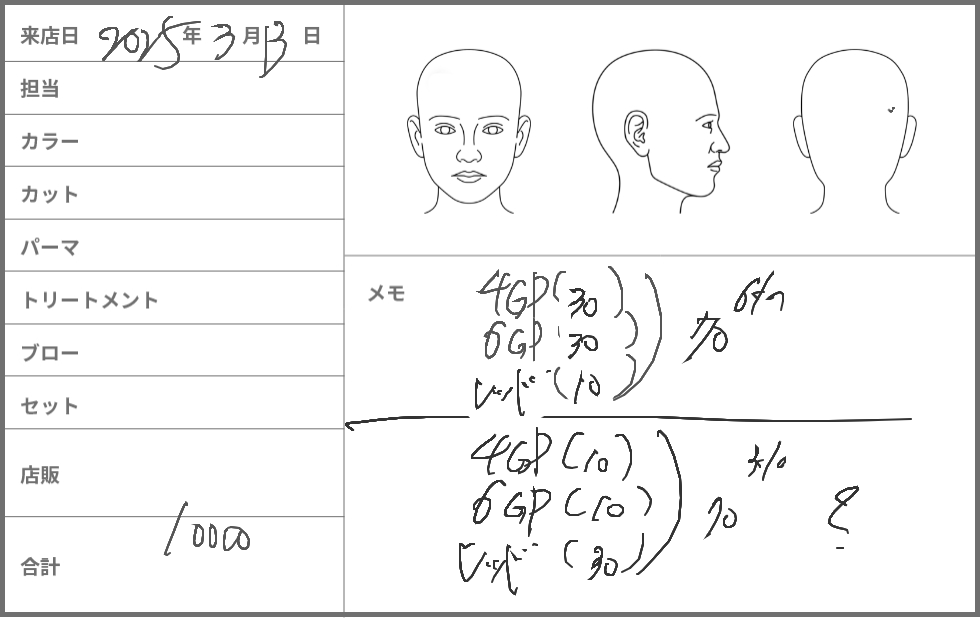 来店日 2025年3月13日
担当
カラー
カット
パーマ
トリートメント
ブロー
セット
店販
合計 10000
メモ
4GP(30)
6GP(30)
レッド(10)
70
4GP(10)
6GP(10)
レッド(30)
70